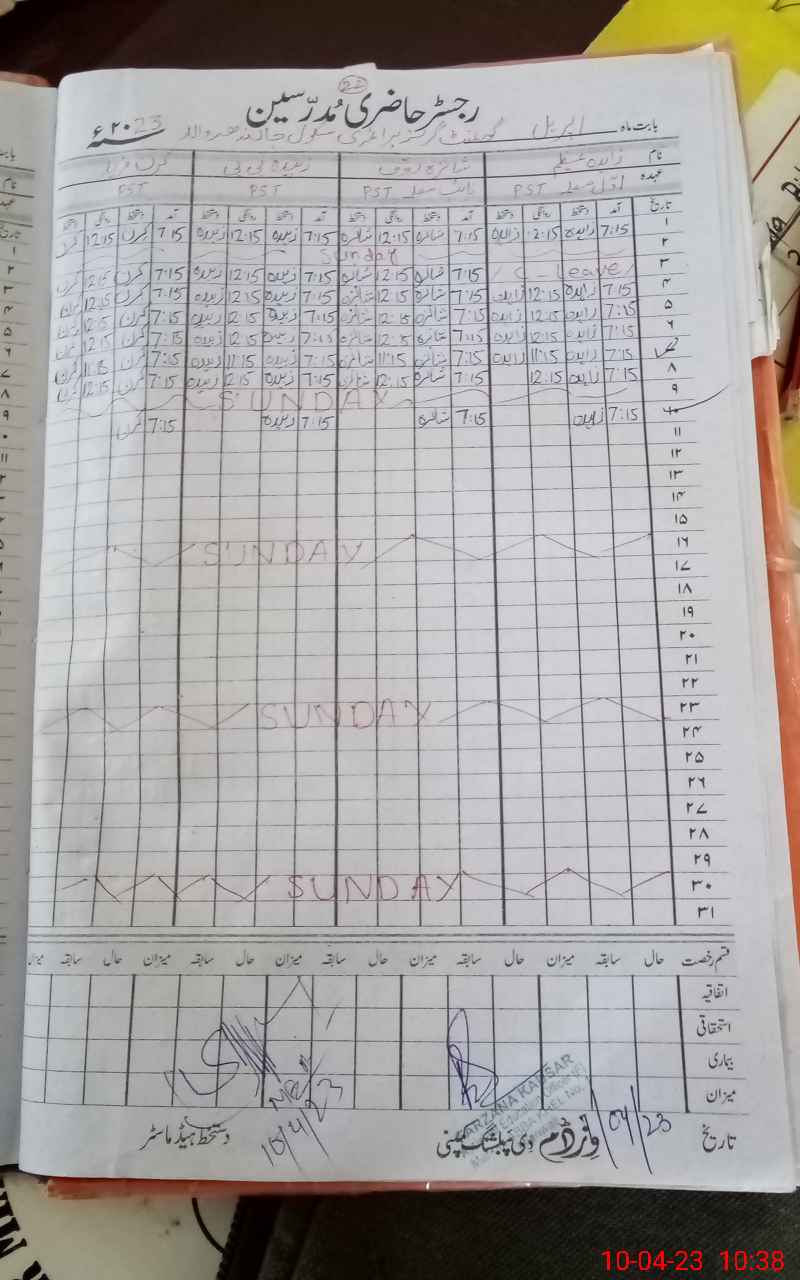 22
رجسٹر حاضری مُدرّسین
بابت ماہ اپریل گورنمنٹ گرلز پرائمری سکول ۲۰23ء
نام زاہدہ شائزہ رؤف زبیدہ بی بی کرن
عہدہ PST PST PST PST
تاریخ آمد دستخط روانگی دستخط آمد دستخط روانگی دستخط آمد دستخط روانگی دستخط آمد دستخط روانگی دستخط
۱ 7:15 زاہدہ 12:15 زاہدہ 7:15 شائزہ 12:15 شائزہ 7:15 زبیدہ 12:15 زبیدہ 7:15 کرن 12:15 کرن
۲ Sunday
۳ C-Leave 7:15 شائزہ 12:15 شائزہ 7:15 زبیدہ 12:15 زبیدہ 7:15 کرن 12:15 کرن
۴ 7:15 زاہدہ 12:15 زاہدہ 7:15 شائزہ 12:15 شائزہ 7:15 زبیدہ 12:15 زبیدہ 7:15 کرن 12:15 کرن
۵ 7:15 زاہدہ 12:15 زاہدہ 7:15 شائزہ 12:15 شائزہ 7:15 زبیدہ 12:15 زبیدہ 7:15 کرن 12:15 کرن
۶ 7:15 زاہدہ 12:15 زاہدہ 7:15 شائزہ 12:15 شائزہ 7:15 زبیدہ 12:15 زبیدہ 7:15 کرن 12:15 کرن
۷ 7:15 زاہدہ 11:15 زاہدہ 7:15 شائزہ 11:15 شائزہ 7:15 زبیدہ 11:15 زبیدہ 7:15 کرن 11:15 کرن
۸ 7:15 زاہدہ 12:15 7:15 شائزہ 12:15 شائزہ 7:15 زبیدہ 12:15 زبیدہ 7:15 کرن 12:15 کرن
۹ SUNDAY
۱۰ 7:15 زاہدہ 7:15 شائزہ 7:15 زبیدہ 7:15 کرن
۱۱
۱۲
۱۳
۱۴
۱۵
۱۶ SUNDAY
۱۷
۱۸
۱۹
۲۰
۲۱
۲۲
۲۳ SUNDAY
۲۴
۲۵
۲۶
۲۷
۲۸
۲۹
۳۰ SUNDAY
۳۱
قسم رخصت حال سابقہ میزان حال سابقہ میزان حال سابقہ میزان حال سابقہ میزان
اتفاقیہ
استحقاقی
بیماری
میزان
FARZANA KAUSAR
تاریخ /04/23 وِزڈم دی پبلشنگ کمپنی 10/4/23 دستخط ہیڈ ماسٹر
10-04-23 10:38